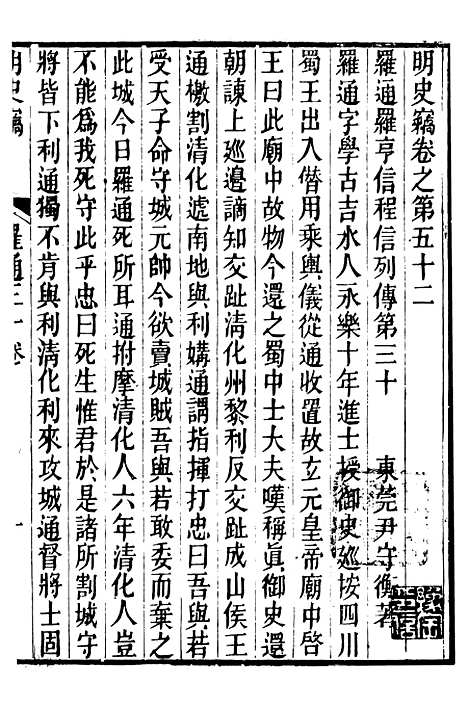 明史竊卷之第五十二
羅通羅亨信程信列傳第三十　東莞尹守衡著
羅通字學古吉水人永樂十年進士授御史巡按四川
蜀王出入僣用乘輿儀從通收置故玄元皇帝廟中啓
王曰此廟中故物今還之蜀中士大夫嘆稱眞御史還
朝諫上巡邊謫知交趾清化州黎利反交趾成山侯王
通檄割清化迆南地與利媾通謂指揮打忠曰吾與若
受天子命守城元帥今欲賣城賊吾與若敢委而棄之
此城今日羅通死所耳通拊摩清化人六年清化人豈
不能爲我死守此乎忠曰死生惟君於是諸所割城守
將皆下利通獨不肯與利清化利來攻城通督將士固
明史竊
羅通五十二卷
一